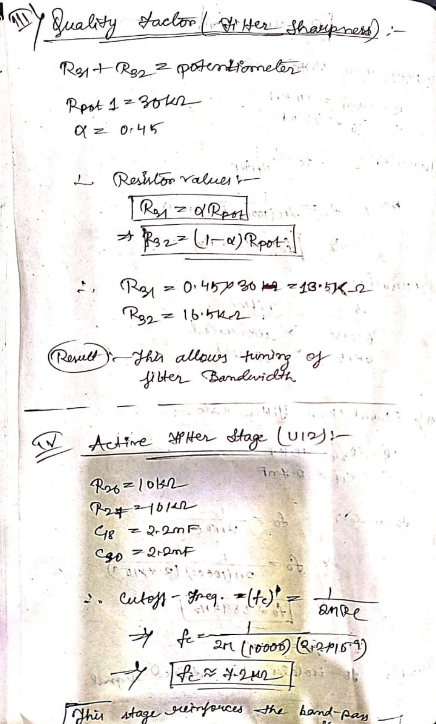 iii) Quality Factor (Filter Sharpness) :-
R31 + R32 = potentiometer
Rpot 1 = 30kΩ
α = 0.45
∴ Resistor values :-
R31 = αRpot
⇒ R32 = (1-α) Rpot.
∴ R31 = 0.45 × 30 = 13.5KΩ
R32 = 16.5kΩ.
Result :- This allows tuning of
filter Bandwidth
iv Active Filter Stage (U12) :-
R26 = 10kΩ
R27 = 10kΩ
C18 = 2.2nF
C20 = 2.2nF
∴ Cutoff-freq. = (fc) = 1/2πRC
⇒ fc = 1/2π (10000) (2.2×10^-9)
⇒ fc ≈ 7.2kHz
This stage reinforces the band-pass